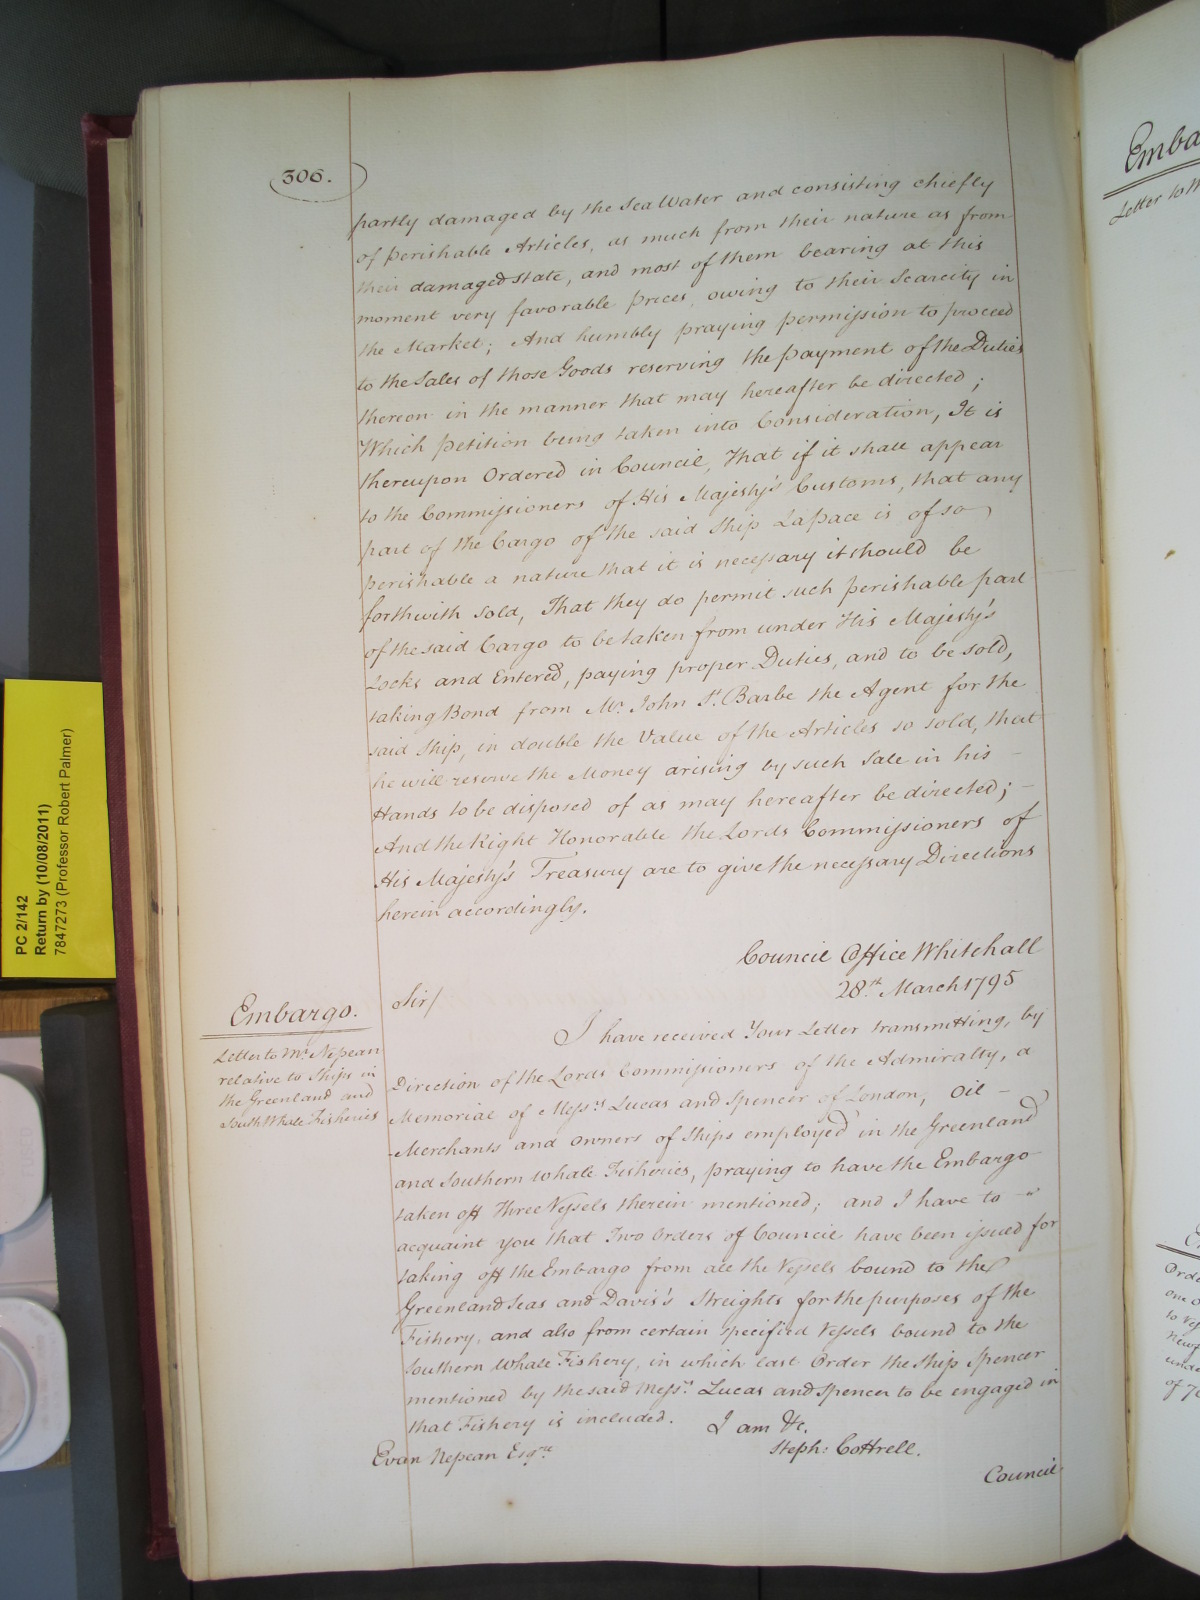 306.
partly damaged by the Sea Water and consisting chiefly
of perishable Articles, as much from their nature as from
their damaged state, and most of them bearing at this
moment very favorable prices, owing to their Scarcity in
the Market; And humbly praying permission to proceed
to the Sales of those Goods reserving the payment of the Duties
thereon in the manner that may hereafter be directed;
Which Petition being taken into Consideration, It is
thereupon Ordered in Council, That if it shall appear
to the Commissioners of His Majesty's Customs, that any
part of the Cargo of the said Ship LaPace is of so
perishable a nature that it is necessary it should be
forthwith Sold, That they do permit such perishable part
of the said Cargo to be taken from under His Majesty's
Locks and Entered, paying proper Duties, and to be sold,
taking Bond from Mr. John St. Barbe the Agent for the
said Ship, in double the Value of the Articles so sold, that
he will reserve the Money arising by such Sale in his
Hands to be disposed of as may hereafter be directed;
And the Right Honorable the Lords Commissioners of
His Majesty's Treasury are to give the necessary Directions
herein accordingly.
Council Office Whitehall
28th. March 1795
Embargo.
Letter to Mr. Nepean
relative to Ships in
the Greenland and
South Whale Fisheries
Sir/
I have received Your Letter transmitting, by
Direction of the Lords Commissioners of the Admiralty, a
Memorial of Messrs. Lucas and Spencer of London, Oil
Merchants and Owners of Ships employed in the Greenland
and Southern Whale Fisheries, praying to have the Embargo
taken off Three Vessels therein mentioned; and I have to
acquaint you that Two Orders of Council have been issued for
taking off the Embargo from all the Vessels bound to the
Greenland Seas and Davis's Streights for the purposes of the
Fishery, and also from certain specified Vessels bound to the
Southern Whale Fishery, in which last Order the Ship Spencer
mentioned by the said Messrs. Lucas and Spencer to be engaged in
that Fishery is included. I am &c.
Evan Nepean Esqre.
Steph: Cottrell.
Council
PC 2/142
Return by (10/08/2011)
7847273 (Professor Robert Palmer)
Emba
Letter to M
Orde
one o
to Ves
Newf
unde